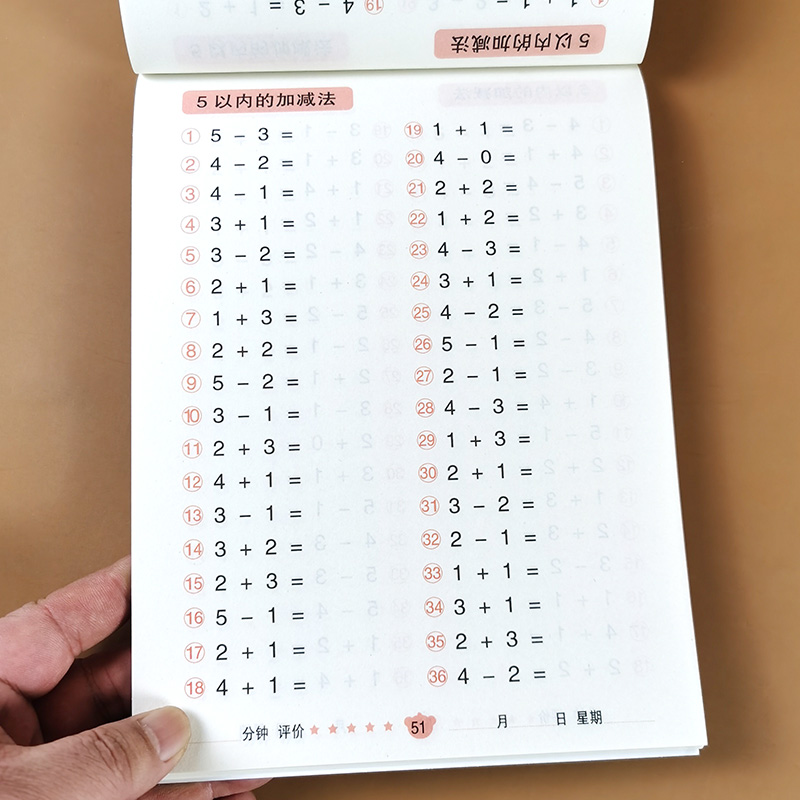 5以内的加减法
① 5 − 3 =
② 4 − 2 =
③ 4 − 1 =
④ 3 + 1 =
⑤ 3 − 2 =
⑥ 2 + 1 =
⑦ 1 + 3 =
⑧ 2 + 2 =
⑨ 5 − 2 =
⑩ 3 − 1 =
⑪ 2 + 3 =
⑫ 4 + 1 =
⑬ 3 − 1 =
⑭ 3 + 2 =
⑮ 2 + 3 =
⑯ 5 − 1 =
⑰ 2 + 1 =
⑱ 4 + 1 =
⑲ 1 + 1 =
⑳ 4 − 0 =
㉑ 2 + 2 =
㉒ 1 + 2 =
㉓ 4 − 3 =
㉔ 3 + 1 =
㉕ 4 − 2 =
㉖ 5 − 1 =
㉗ 2 − 1 =
㉘ 4 − 3 =
㉙ 1 + 3 =
㉚ 2 + 1 =
㉛ 3 − 2 =
㉜ 2 − 1 =
㉝ 1 + 1 =
㉞ 3 + 1 =
㉟ 2 + 3 =
㊱ 4 − 2 =
分钟 评价 ★ ★ ★ ★ ★ 51 月 日 星期
5以内的加减法
⑲ 4 − 3 =